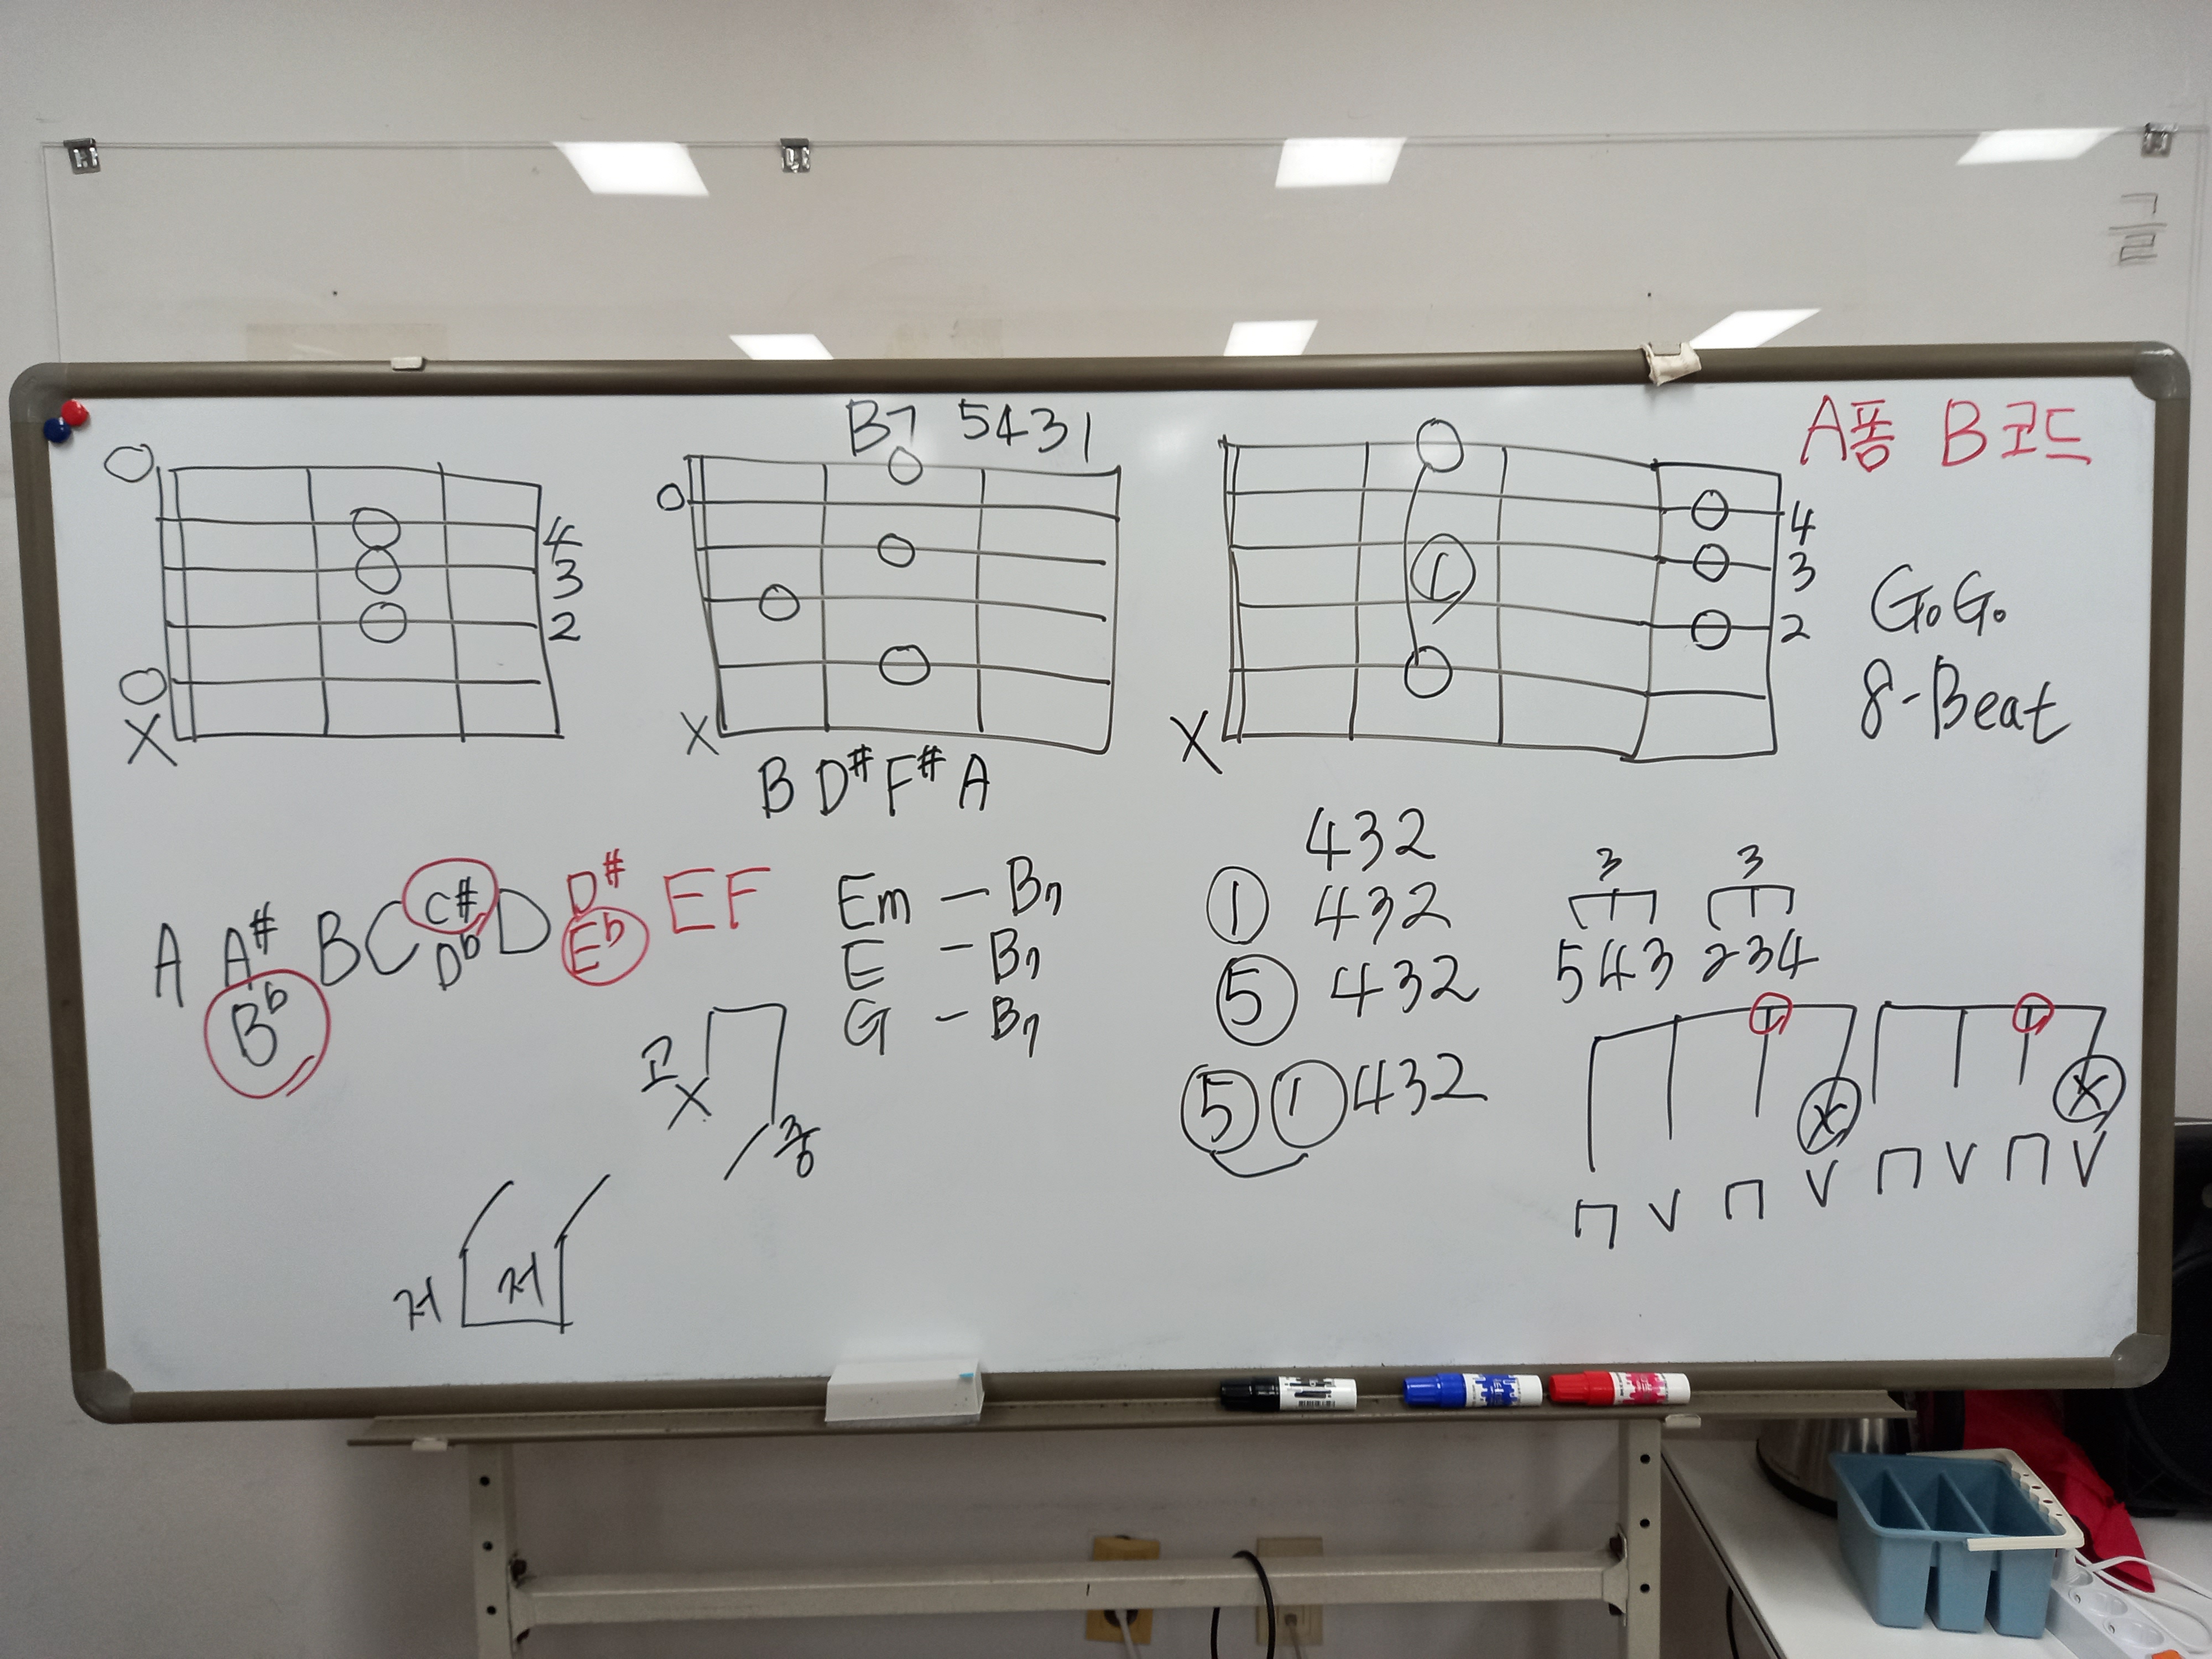 B7 5431
A폼 B코드
O
4
3
2
O
X
O
X
1
4
3
2
X
GoGo
8-Beat
B D# F# A
A A# B C C# D D# E F
Bb Db Eb
Em - B7
E - B7
G - B7
432
① 432
⑤ 432
⑤ ① 432
3 3
543 234
X X
V V V V
고
X
중
저 저